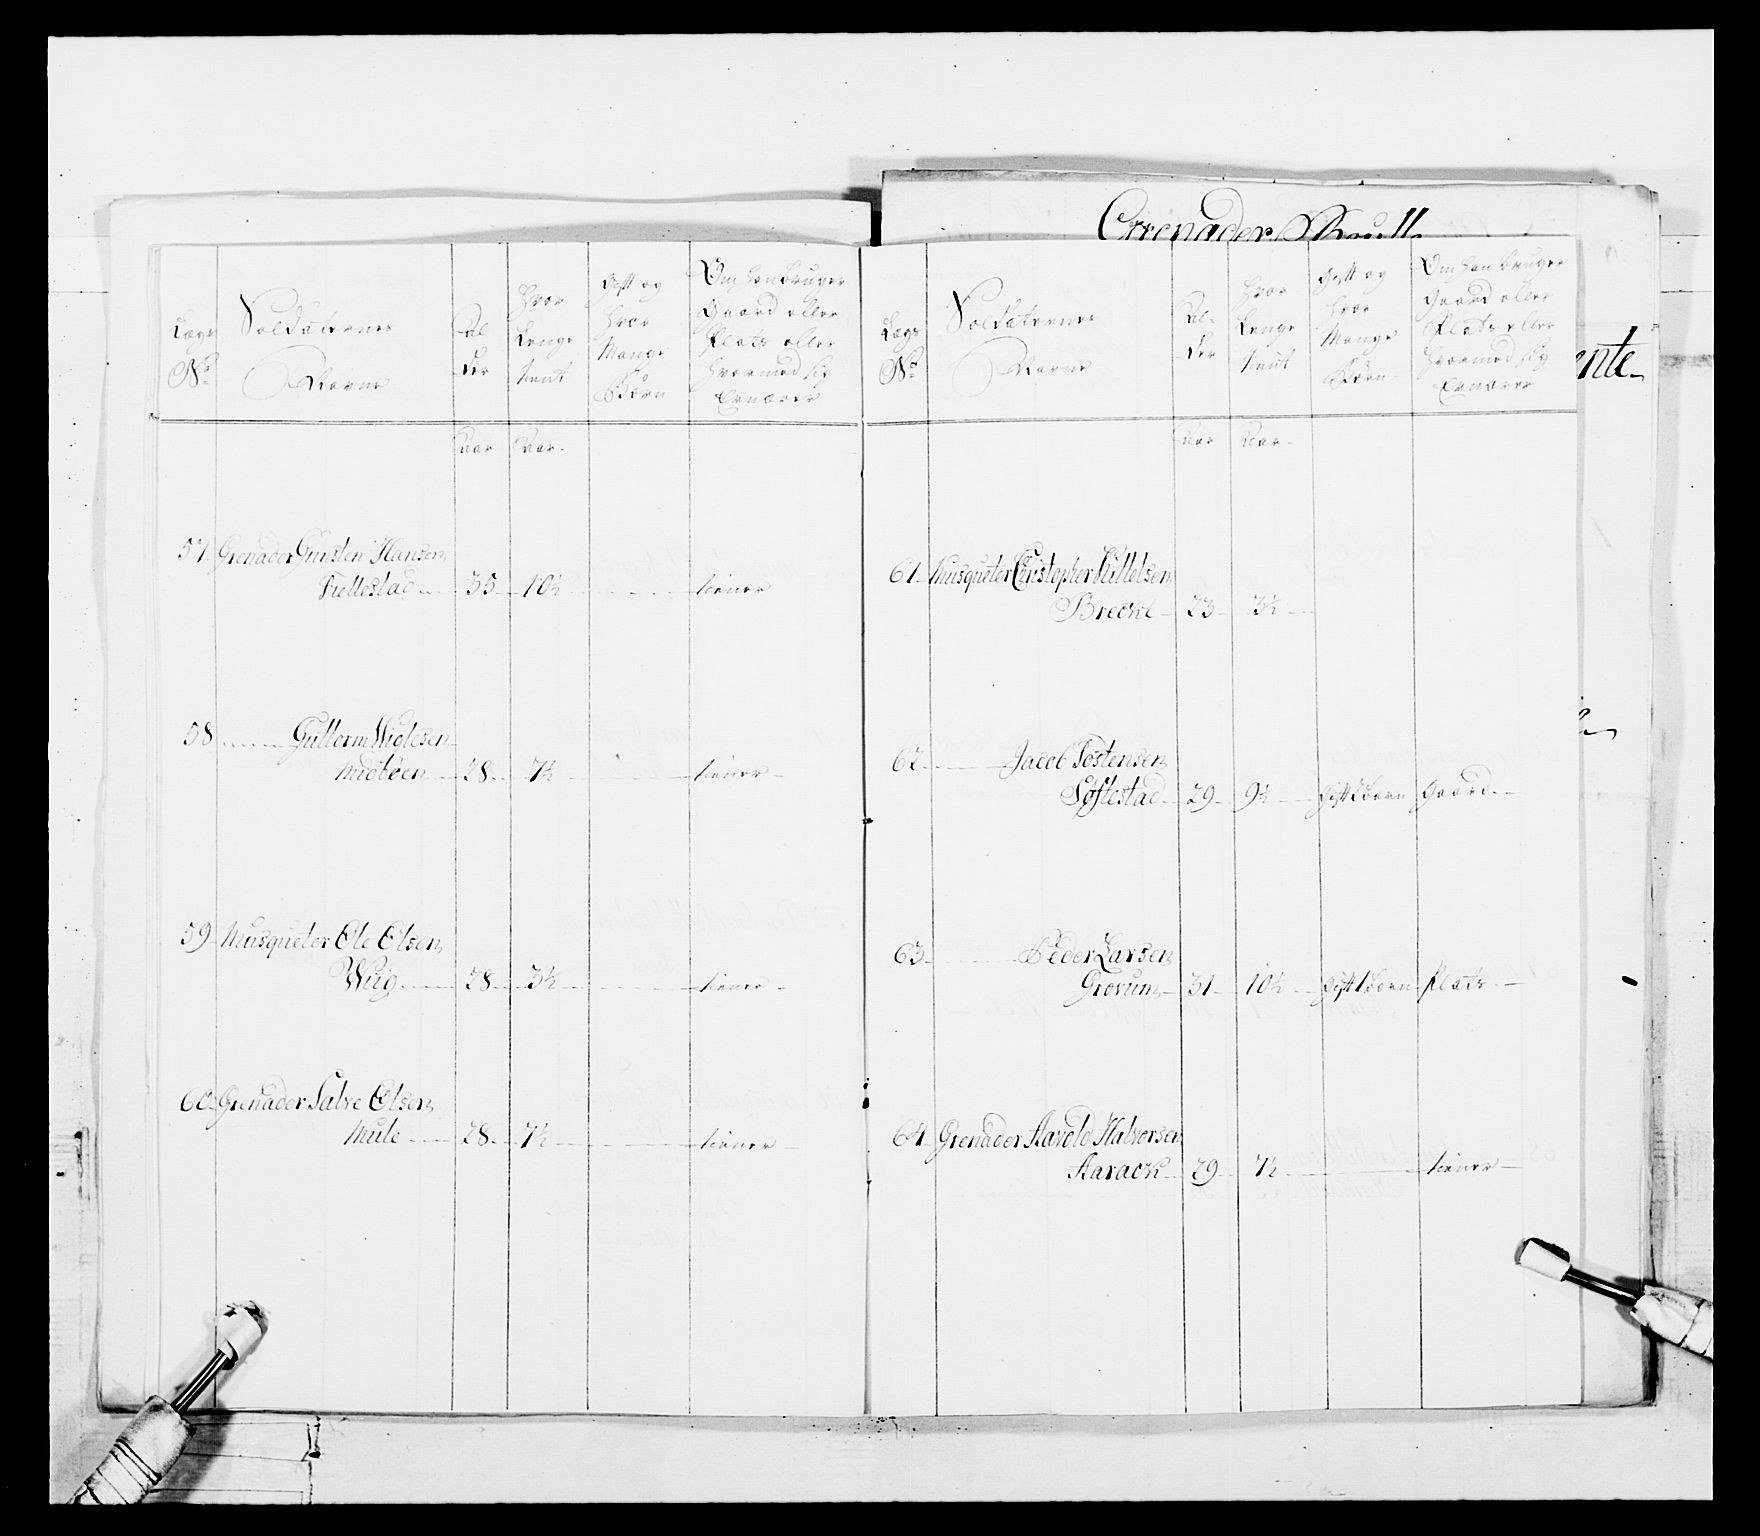 Grenader Rull
Lægs
No
Soldaternes
Navne
Al
der
Hvor
Lenge
tient
Gift og
Hvor
Mange
Børn
Om han bruger
Gaard eller
Plads eller
Hvormed sig
Ernærer
Aar
Aar
57 Grenader Gunsten Hansen
Fiellestad 35 10½ tiener
58 Gullerm Wiglesen
Midbøen 28 7½ tiener
59 Musqueter Ole Olsen
Wiig 28 3½ tiener
60 Grenader Salve Olsen
Mule 28 7½ tiener
Lægs
No
Soldaternes
Navne
Al-
der
Hvor
Lenge
tient
Gift og
Hvor
Mange
Børn
Om han bruger
Gaard eller
Plads eller
Hvormed sig
Ernærer
Aar
Aar
61 Musqueter Christopher Kittelsen
Brecke 23 3½
62 Jacob Tostensen
Søftestad 29 9½ Gift 2 børn Gaard
63 Peder Larsen
Grovum 31 10½ Gift 1 barn Plads
64 Grenader Aavold Halvorsen
Aarack 29 7½ tiener